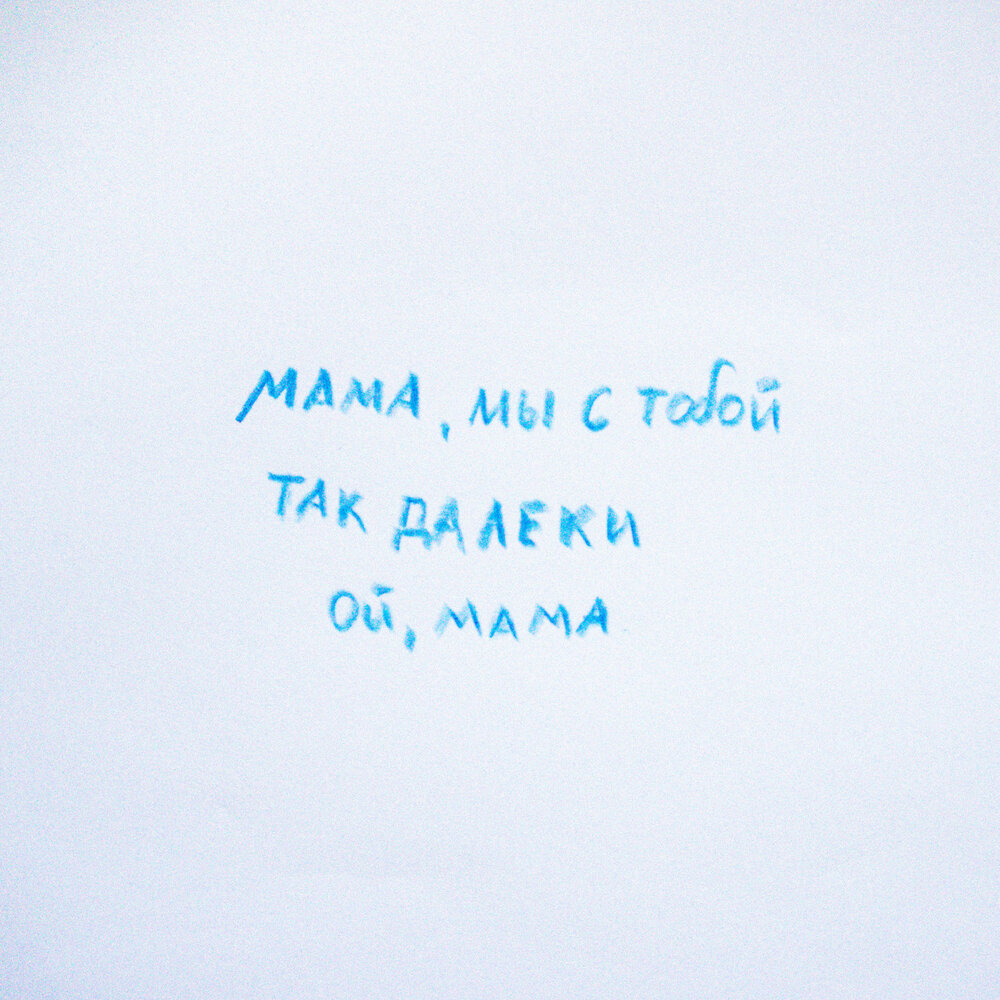 МАМА, МЫ С ТОБОЙ
ТАК ДАЛЕКИ
ОЙ, МАМА